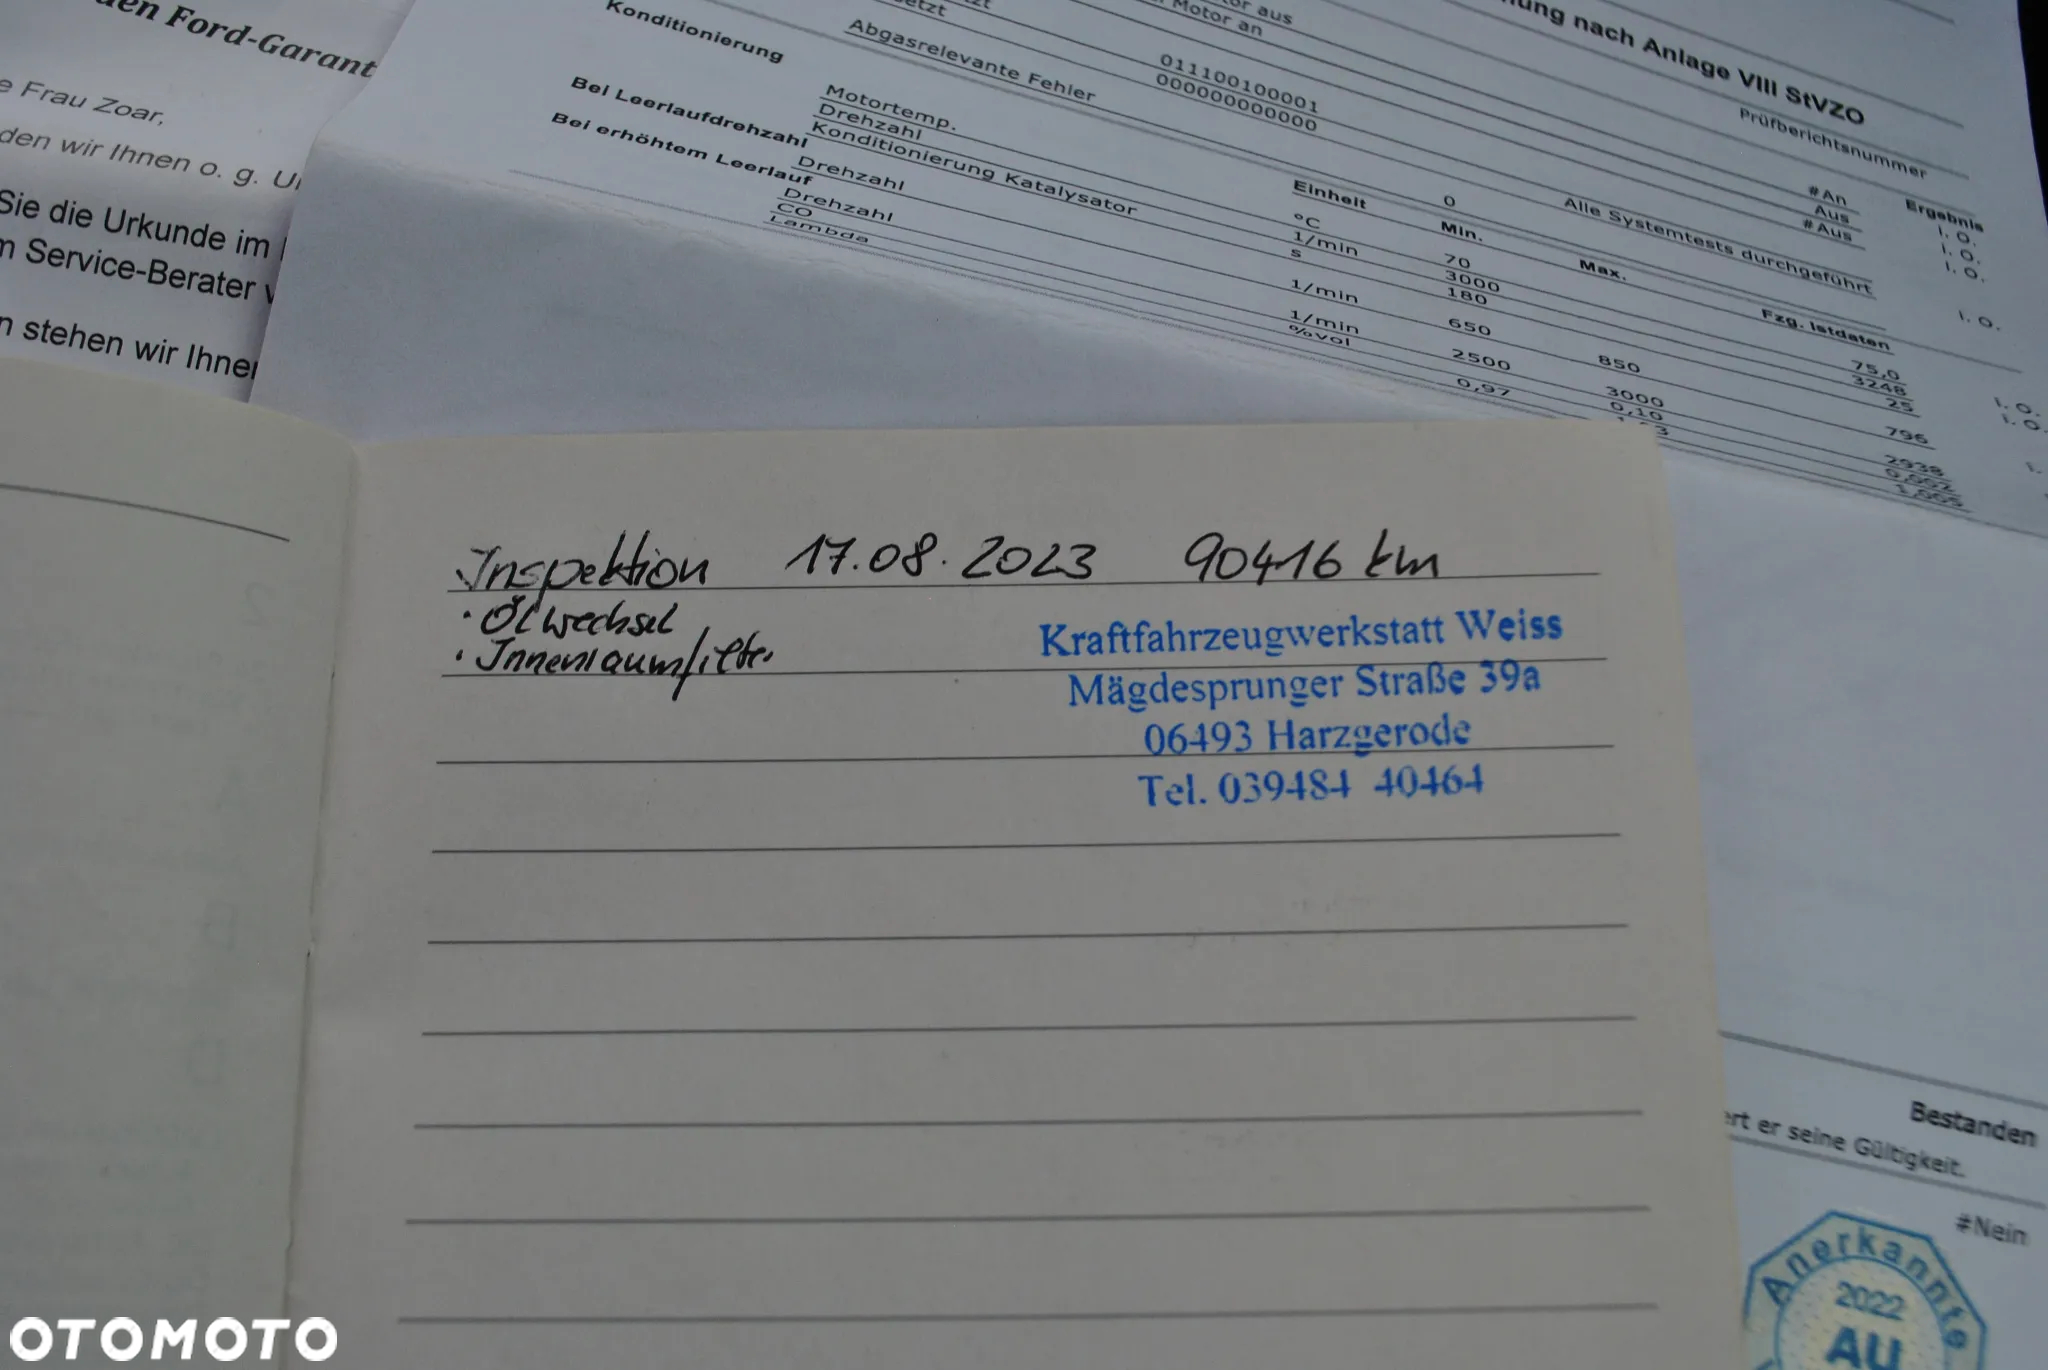 den Ford-Garant
Frau Zoar,
den wir Ihnen o. g. U
Sie die Urkunde im
Service-Berater
stehen wir Ihnen
nach Anlage VIII StVZO
Prüfberichtsnummer
aus
Motor an
Konditionierung
Abgasrelevante Fehler
011100100001
000000000000
#An
Aus
#Aus
Ergebnis
i. O.
i. O.
i. O.
0
Alle Systemtests durchgeführt
i. O.
Einheit Min. Max. Fzg. Istdaten
Motortemp. °C 70 75,0
Drehzahl 1/min 3000 3248
Konditionierung Katalysator s 180 25
Bei Leerlaufdrehzahl
Drehzahl 1/min 650 850 796
Bei erhöhtem Leerlauf
Drehzahl 1/min 2500 3000 2938
CO %vol 0,10 0,002
Lambda 0,97 1,005
Inspektion 17.08.2023 90416 km
· Ölwechsel
· Innenraumfilter
Kraftfahrzeugwerkstatt Weiss
Mägdesprunger Straße 39a
06493 Harzgerode
Tel. 039484 40464
Bestanden
ert er seine Gültigkeit.
#Nein
Anerkannte
2022
AU
OTOMOTO